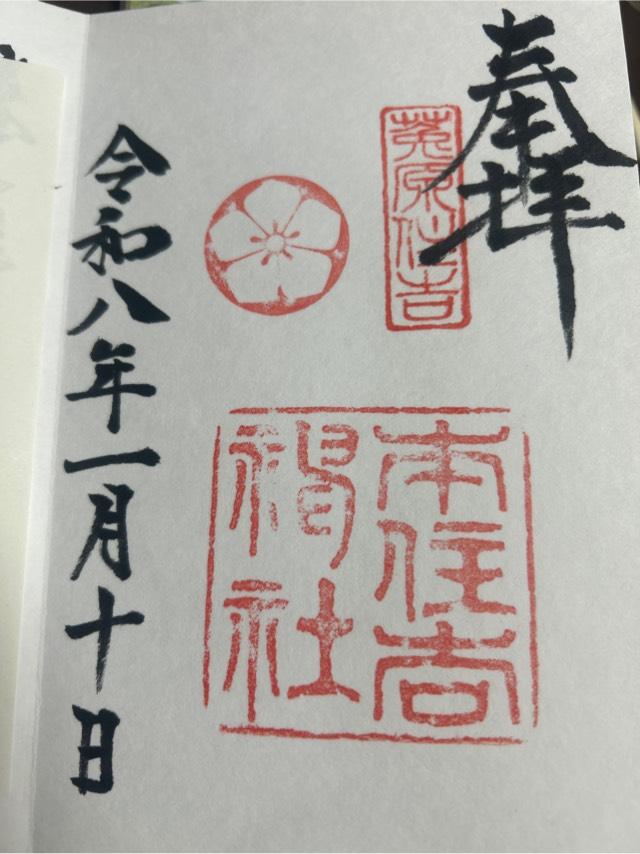 奉拝
菟原住吉
本住吉
神社
令和八年一月十日